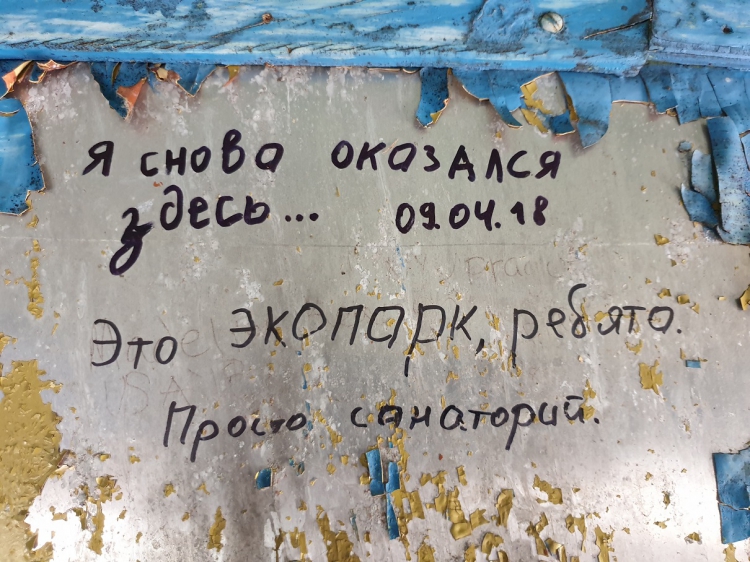 Я снова оказался
здесь... 09.04.18
Это ЭКОПАРК, ребята.
Просто санаторий.